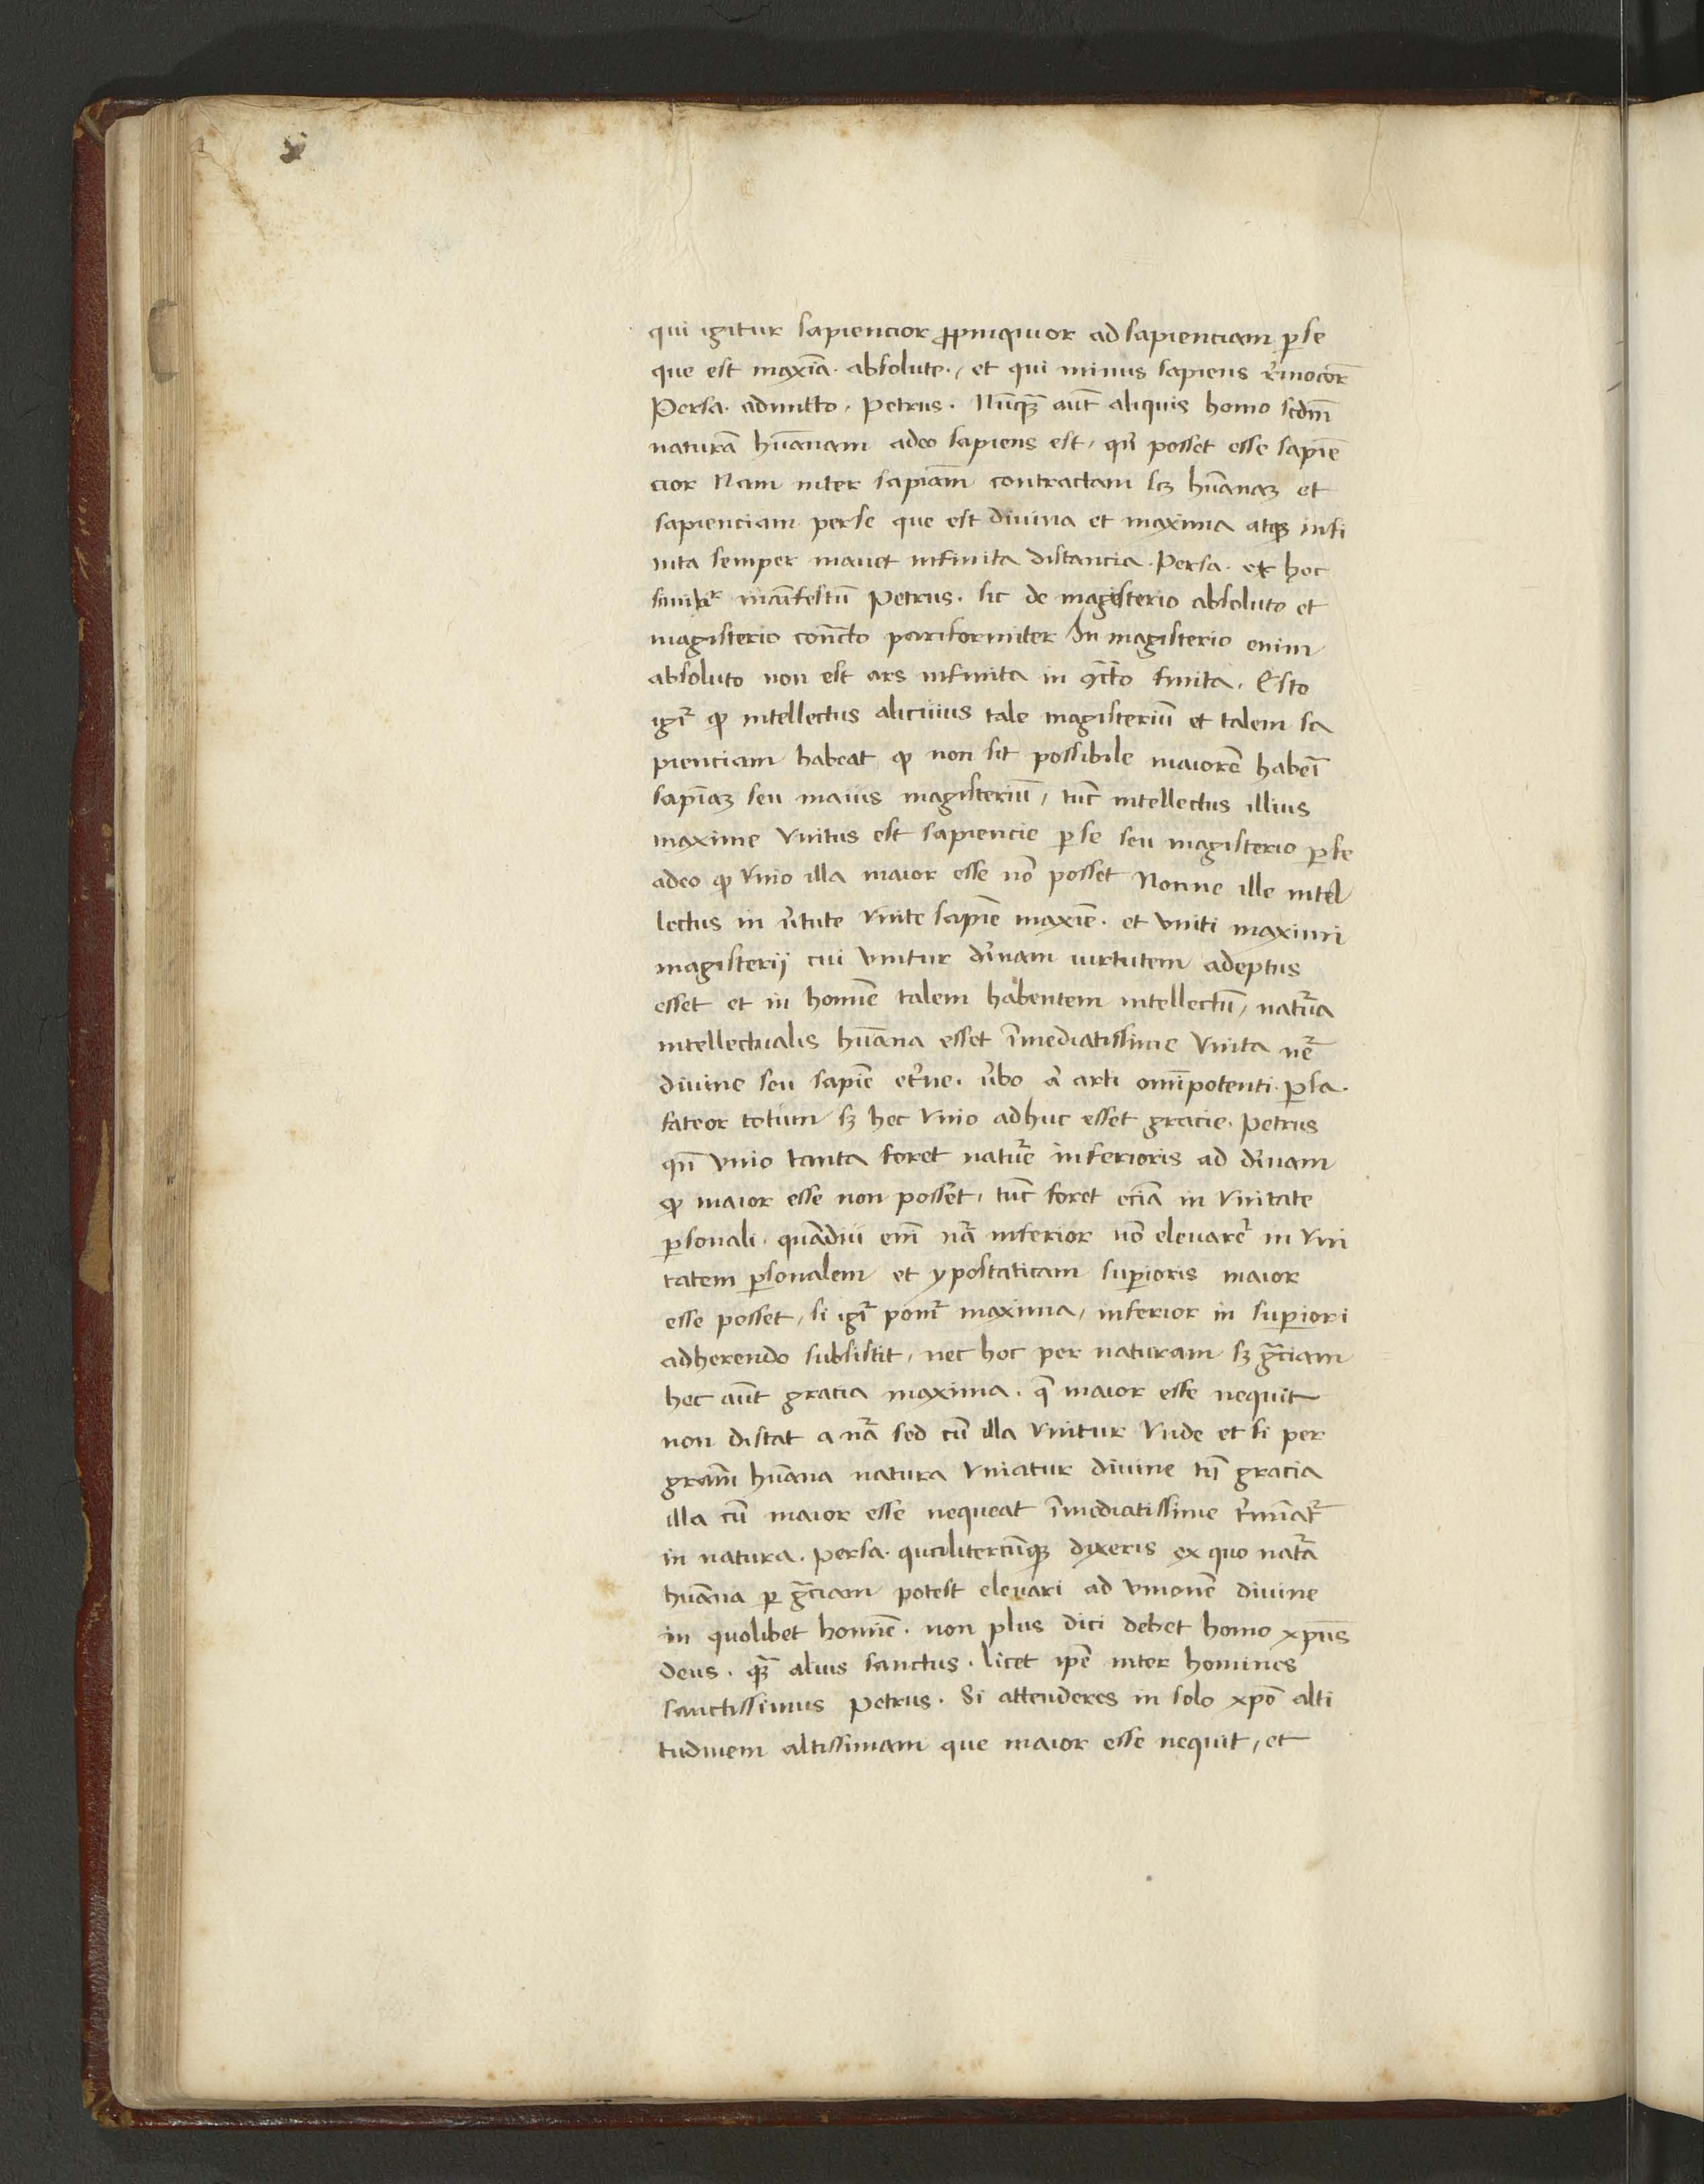 qui igitur sapiencior ꝓpinquior ad sapienciam ꝑ se
que est maxĩa · absolute · / et qui minus sapiens r̃mocõr
Persa · admitto · Petrus · Nũqȝ aũt aliquis homo scdm̃
naturã hũanam adeo sapiens est / qñ posset esse sapiẽ
cior Nam inter sapiãm contractam scȝ hũanaȝ et
sapienciam per se que est divina et maxima atqȝ infi
nita semper manet infinita distancia · Persa · et hoc
similit̃ mãifestũ Petrus · sic de magisterio absoluto et
magisterio cõncto pariformiter In magisterio enim
absoluto non est ars infinita in ꝯc̃to finita · Esto
igr̃ ꝙ intellectus alicuius tale magisteriũ et talem sa
pienciam habeat ꝙ non sit possibile maiorẽ haber̃i
sapĩaȝ seu maius magisteriũ / tũc intellectus illius
maxime vnitus est sapiencie ꝑ se seu magisterio ꝑ se
adeo ꝙ vnio illa maior esse nõ posset Nonne ille intel
lectus in ṽtute vnite sapiẽ maxiẽ · et vniti maximi
magisterij cui vnitur dĩvinam virtutem adeptus
esset et in homĩe talem habentem intellectũ / natur̃a
intellectualis hũana esset ĩmediatissime vnita nr̃e
divine seu sapiẽ et̃ne · ṽbo ã arti omĩpotenti · ꝑsa ·
fateor totum sȝ hec vnio adhuc esset gracie · Petrus
qñ vnio tanta foret natur̃e inferioris ad dĩvinam
ꝙ maior esse non posset / tũc foret eciã in vnitate
ꝑsonali · quãdiu em̃ nr̃a inferior nõ elevaret̃ in vni
tatem ꝑsonalem et ypostaticam suꝑioris maior
esse posset / si igr̃ ponit̃ maxima / inferior in suꝑiori
adherendo subsistit / nec hoc per naturam sȝ gr̃aciam
hec aũt gracia maxima · q̃ maior esse nequit
non distat a nr̃a sed cũ illa vnitur Vnde et si per
graãm hũana natura vniatur divine tñ gracia
illa cũ maior esse nequeat ĩmediatissime t̃minat̃
in natura · Persa · qualitercũqȝ dixeris ex quo natr̃a
hũana ꝑ gr̃aciam potest elevari ad vnionẽ divine
in quolibet homĩe · non plus dici debet homo xp̃us
deus · qȝ̃ alius sanctus · licet ip̃e inter homines
sanctissimus Petrus · Si attenderes in solo xp̃o alti
tudinem altissimam que maior esse nequit / et